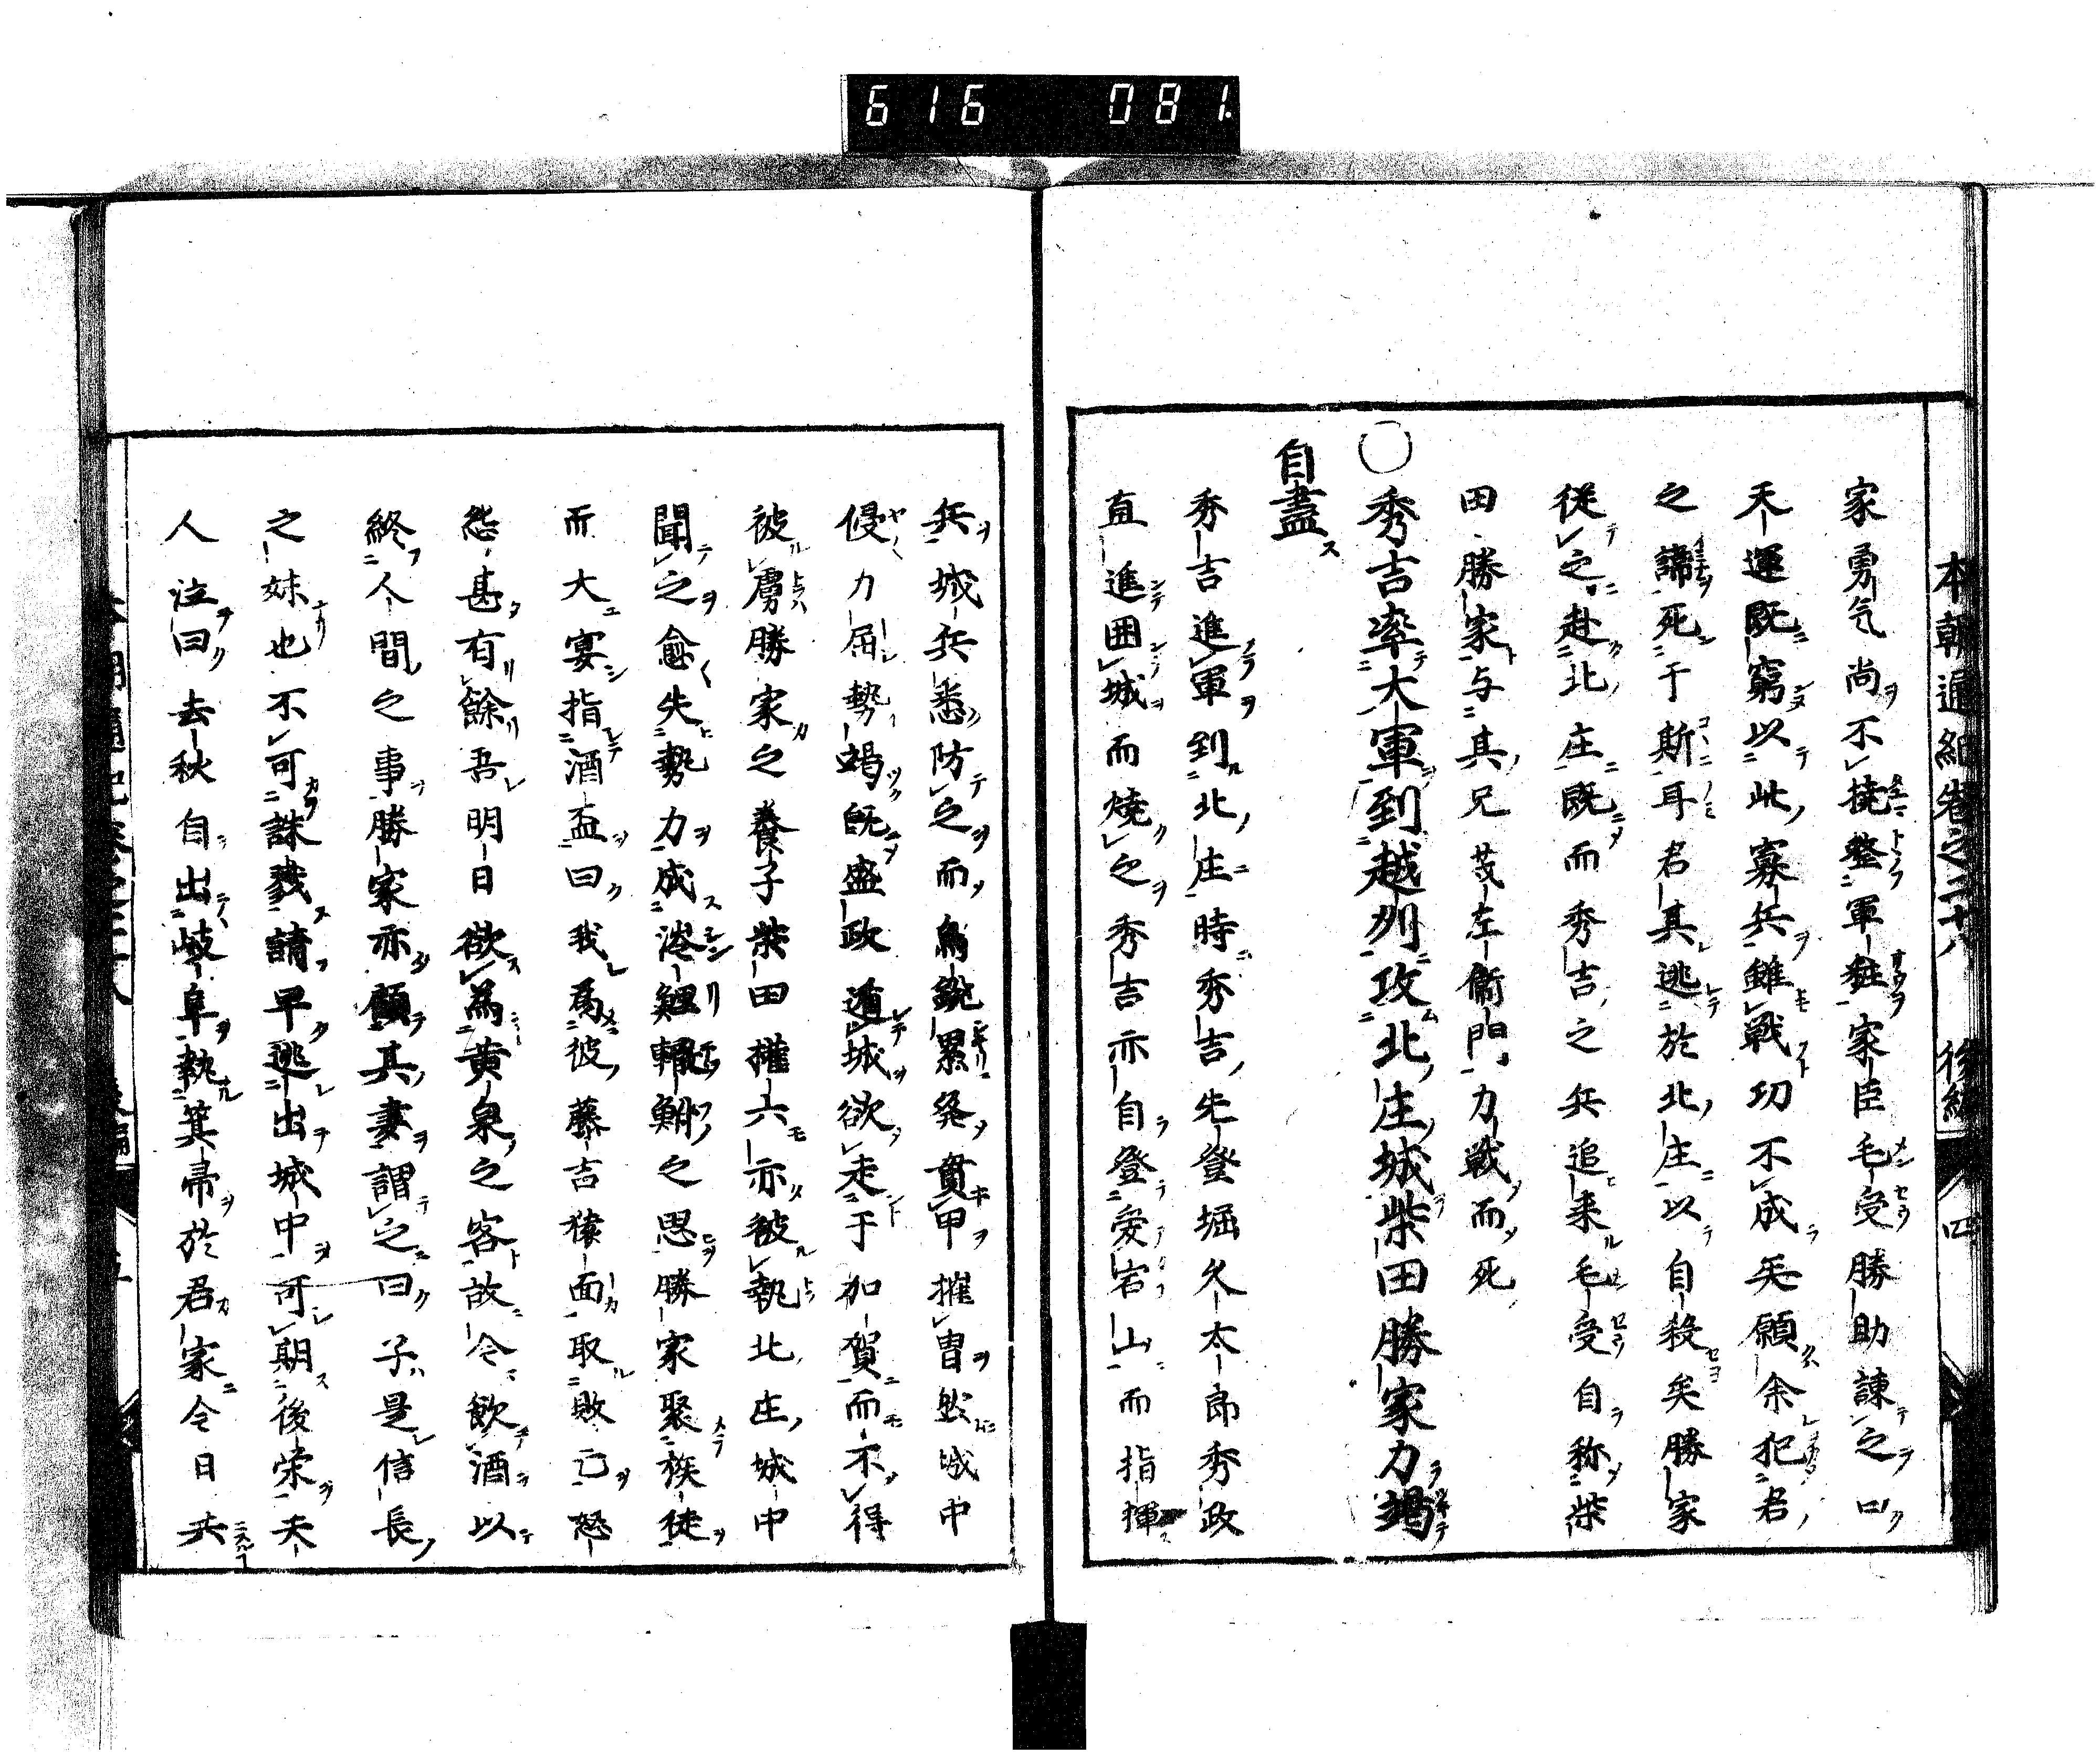 616 081
本朝通紀卷之二十八 後編 四
家勇气尚不撓整軍粧家臣毛受勝助諌之曰
天運既窮以此寡兵雖戰功不成矣願余犯君
之諱死于斯耳君其逃於北庄以自殺矣勝家
従之赴北庄既而秀吉之兵追来毛受自称柴
田勝家与其兄茂左衛門力戰而死
○秀吉率大軍到越列攻北庄城柴田勝家力竭
自盡
秀吉進軍到北庄時秀吉先登堀久太郎秀政
直進囲城而燒之秀吉亦自登愛宕山而指揮
兵城兵悉防之而鳥銃累発貫甲摧冑然城中
侵力屈勢竭既盛政遁城欲走于加賀而不得
被虜勝家之養子柴田權六亦被執北庄城中
聞之愈失勢力成涔鯉轍鮒之思勝家聚族徒
而大宴指酒盃曰我為彼藤吉猿面取敗亡怒
怨甚有餘吾明日欲為黄泉之客故令飲酒以
終人間之事勝家亦顧其妻謂之曰子是信長
之妹也不可誅戮請早逃出城中可期後栄夫
人泣曰去秋自出岐阜執箕帚於君家今日共